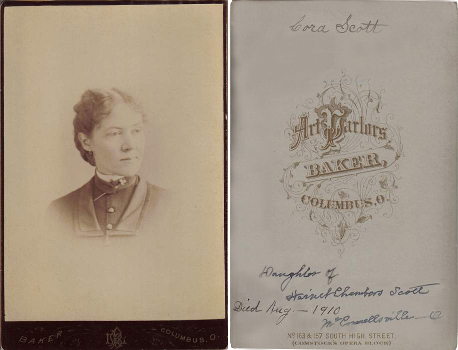 BAKER
COLUMBUS, O.
Cora Scott
Art Parlors
BAKER,
COLUMBUS, O.
Daughter of
Harriet Chambers Scott
Died Aug — 1910
McConnellsville — O
No 163 & 157 SOUTH HIGH STREET.
(COMSTOCK'S OPERA BLOCK)